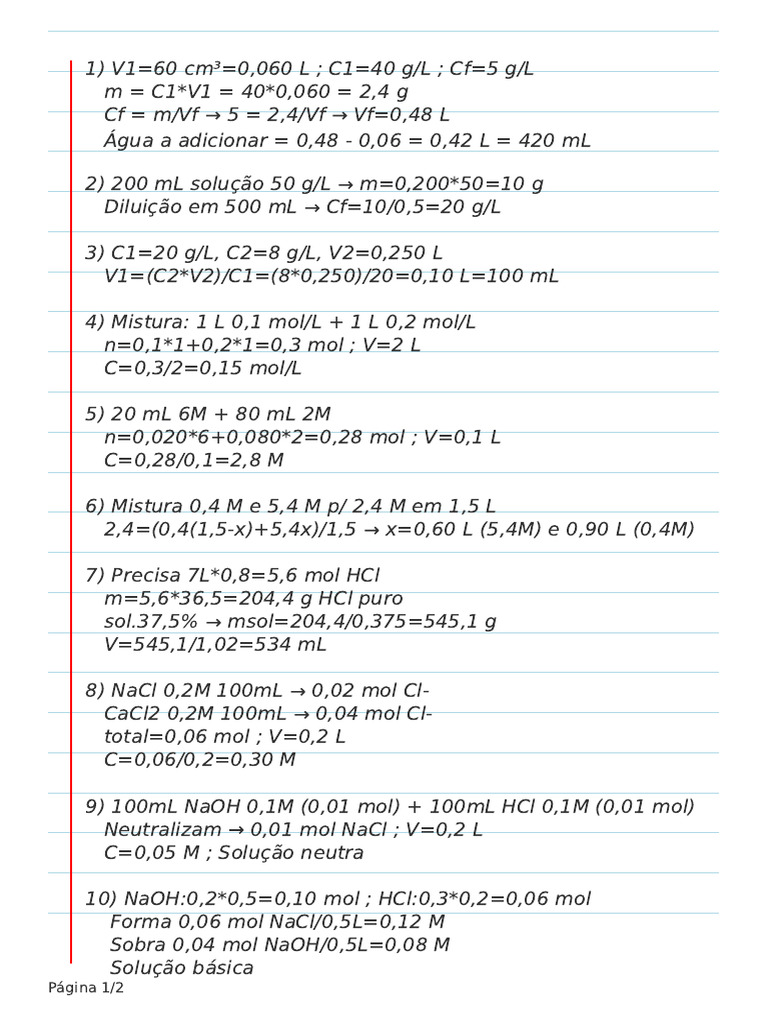 1) V1=60 cm³=0,060 L ; C1=40 g/L ; Cf=5 g/L
m = C1*V1 = 40*0,060 = 2,4 g
Cf = m/Vf → 5 = 2,4/Vf → Vf=0,48 L
Água a adicionar = 0,48 - 0,06 = 0,42 L = 420 mL
2) 200 mL solução 50 g/L → m=0,200*50=10 g
Diluição em 500 mL → Cf=10/0,5=20 g/L
3) C1=20 g/L, C2=8 g/L, V2=0,250 L
V1=(C2*V2)/C1=(8*0,250)/20=0,10 L=100 mL
4) Mistura: 1 L 0,1 mol/L + 1 L 0,2 mol/L
n=0,1*1+0,2*1=0,3 mol ; V=2 L
C=0,3/2=0,15 mol/L
5) 20 mL 6M + 80 mL 2M
n=0,020*6+0,080*2=0,28 mol ; V=0,1 L
C=0,28/0,1=2,8 M
6) Mistura 0,4 M e 5,4 M p/ 2,4 M em 1,5 L
2,4=(0,4(1,5-x)+5,4x)/1,5 → x=0,60 L (5,4M) e 0,90 L (0,4M)
7) Precisa 7L*0,8=5,6 mol HCl
m=5,6*36,5=204,4 g HCl puro
sol.37,5% → msol=204,4/0,375=545,1 g
V=545,1/1,02=534 mL
8) NaCl 0,2M 100mL → 0,02 mol Cl-
CaCl2 0,2M 100mL → 0,04 mol Cl-
total=0,06 mol ; V=0,2 L
C=0,06/0,2=0,30 M
9) 100mL NaOH 0,1M (0,01 mol) + 100mL HCl 0,1M (0,01 mol)
Neutralizam → 0,01 mol NaCl ; V=0,2 L
C=0,05 M ; Solução neutra
10) NaOH:0,2*0,5=0,10 mol ; HCl:0,3*0,2=0,06 mol
Forma 0,06 mol NaCl/0,5L=0,12 M
Sobra 0,04 mol NaOH/0,5L=0,08 M
Solução básica
Página 1/2